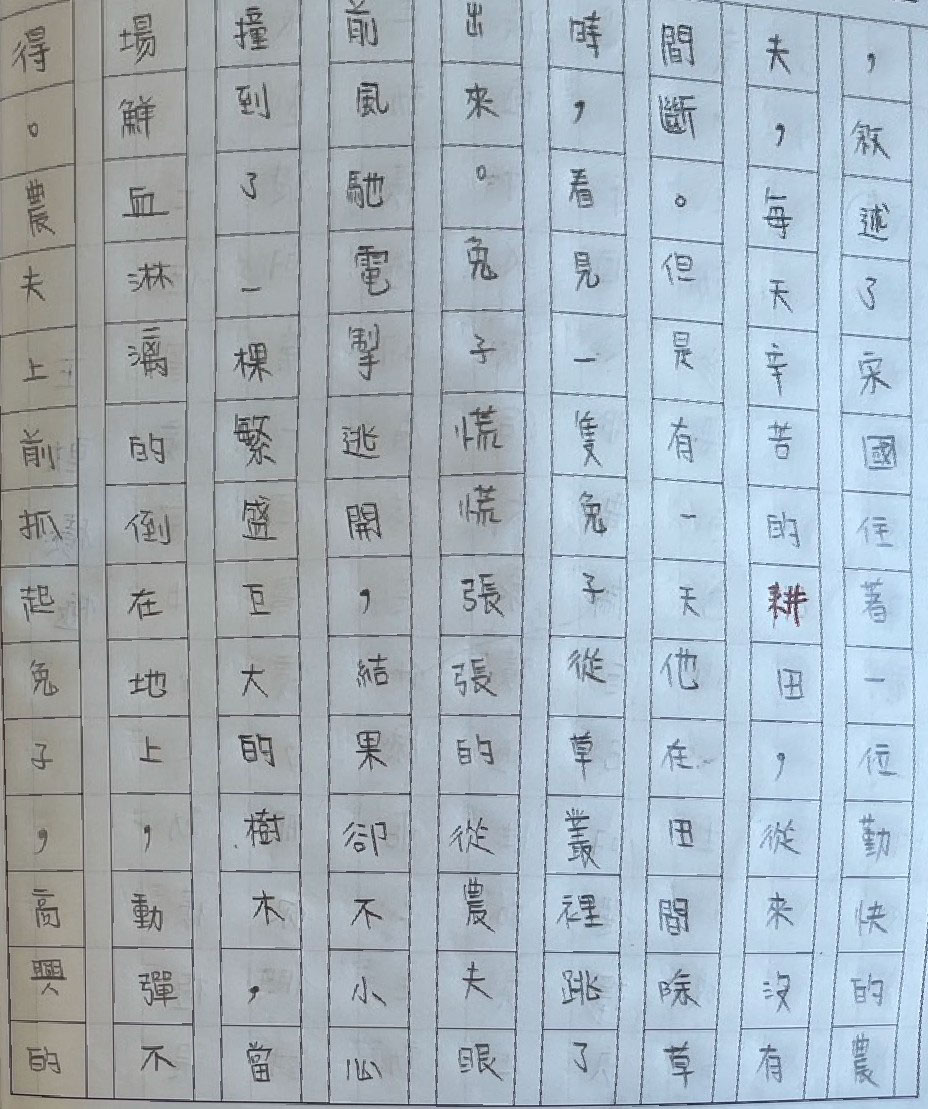 ，敘述了宋國住著一位勤快的農
夫，每天辛苦的耕田，從來沒有
間斷。但是有一天他在田間除草
時，看見一隻兔子從草叢裡跳了
出來。兔子慌慌張張的從農夫眼
前風馳電掣逃開，結果卻不小心
撞到了一棵繁盛巨大的樹木，當
場鮮血淋漓的倒在地上，動彈不
得。農夫上前抓起兔子，高興的